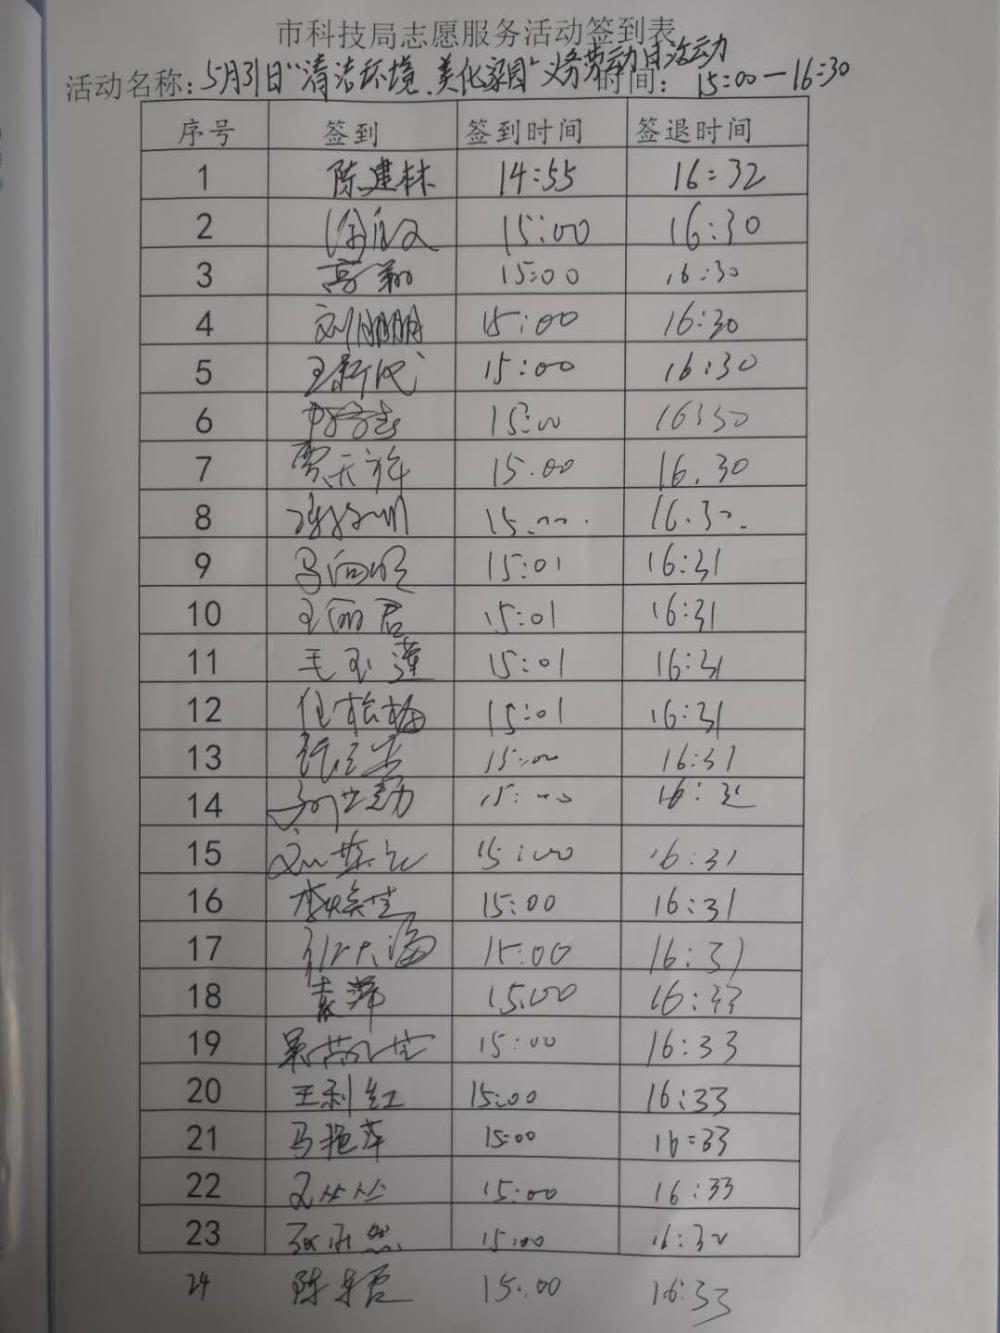 市科技局志愿服务活动签到表
活动名称：5月31日"清洁环境、美化家园"义务劳动日活动 时间：15:00—16:30
序号 签到 签到时间 签退时间
1 陈建林 14:55 16:32
2 15:00 16:30
3 高翔 15:00 16:30
4 刘朋朋 15:00 16:30
5 王新民 15:00 16:30
6 15:00 16:30
7 贾天许 15.00 16.30
8 15.00. 16.30.
9 马向明 15:01 16:31
10 王丽君 15:01 16:31
11 毛玉莲 15:01 16:31
12 任松梅 15:01 16:31
13 15:00 16:31
14 15:00
15 15:00 16:31
16 李焕芝 15:00 16:31
17 15:00 16:31
18 袁萍 15:00 16:33
19 15:00 16:33
20 王利红 15:00 16:33
21 马艳萍 15:00 16:33
22 15:00 16:33
23 15:00 16:30
24 15:00 16:33